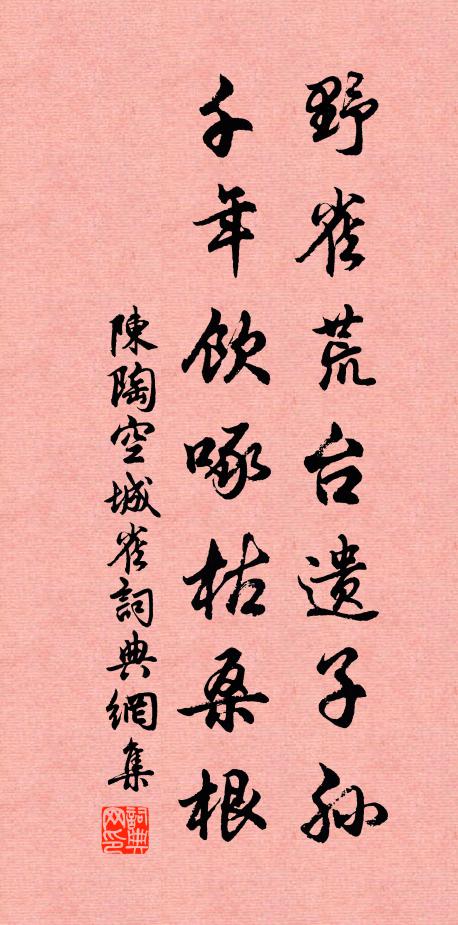 野雀荒台遗子孙
千年饮啄枯桑根
陳陶空城雀詞典網集
詞典网印